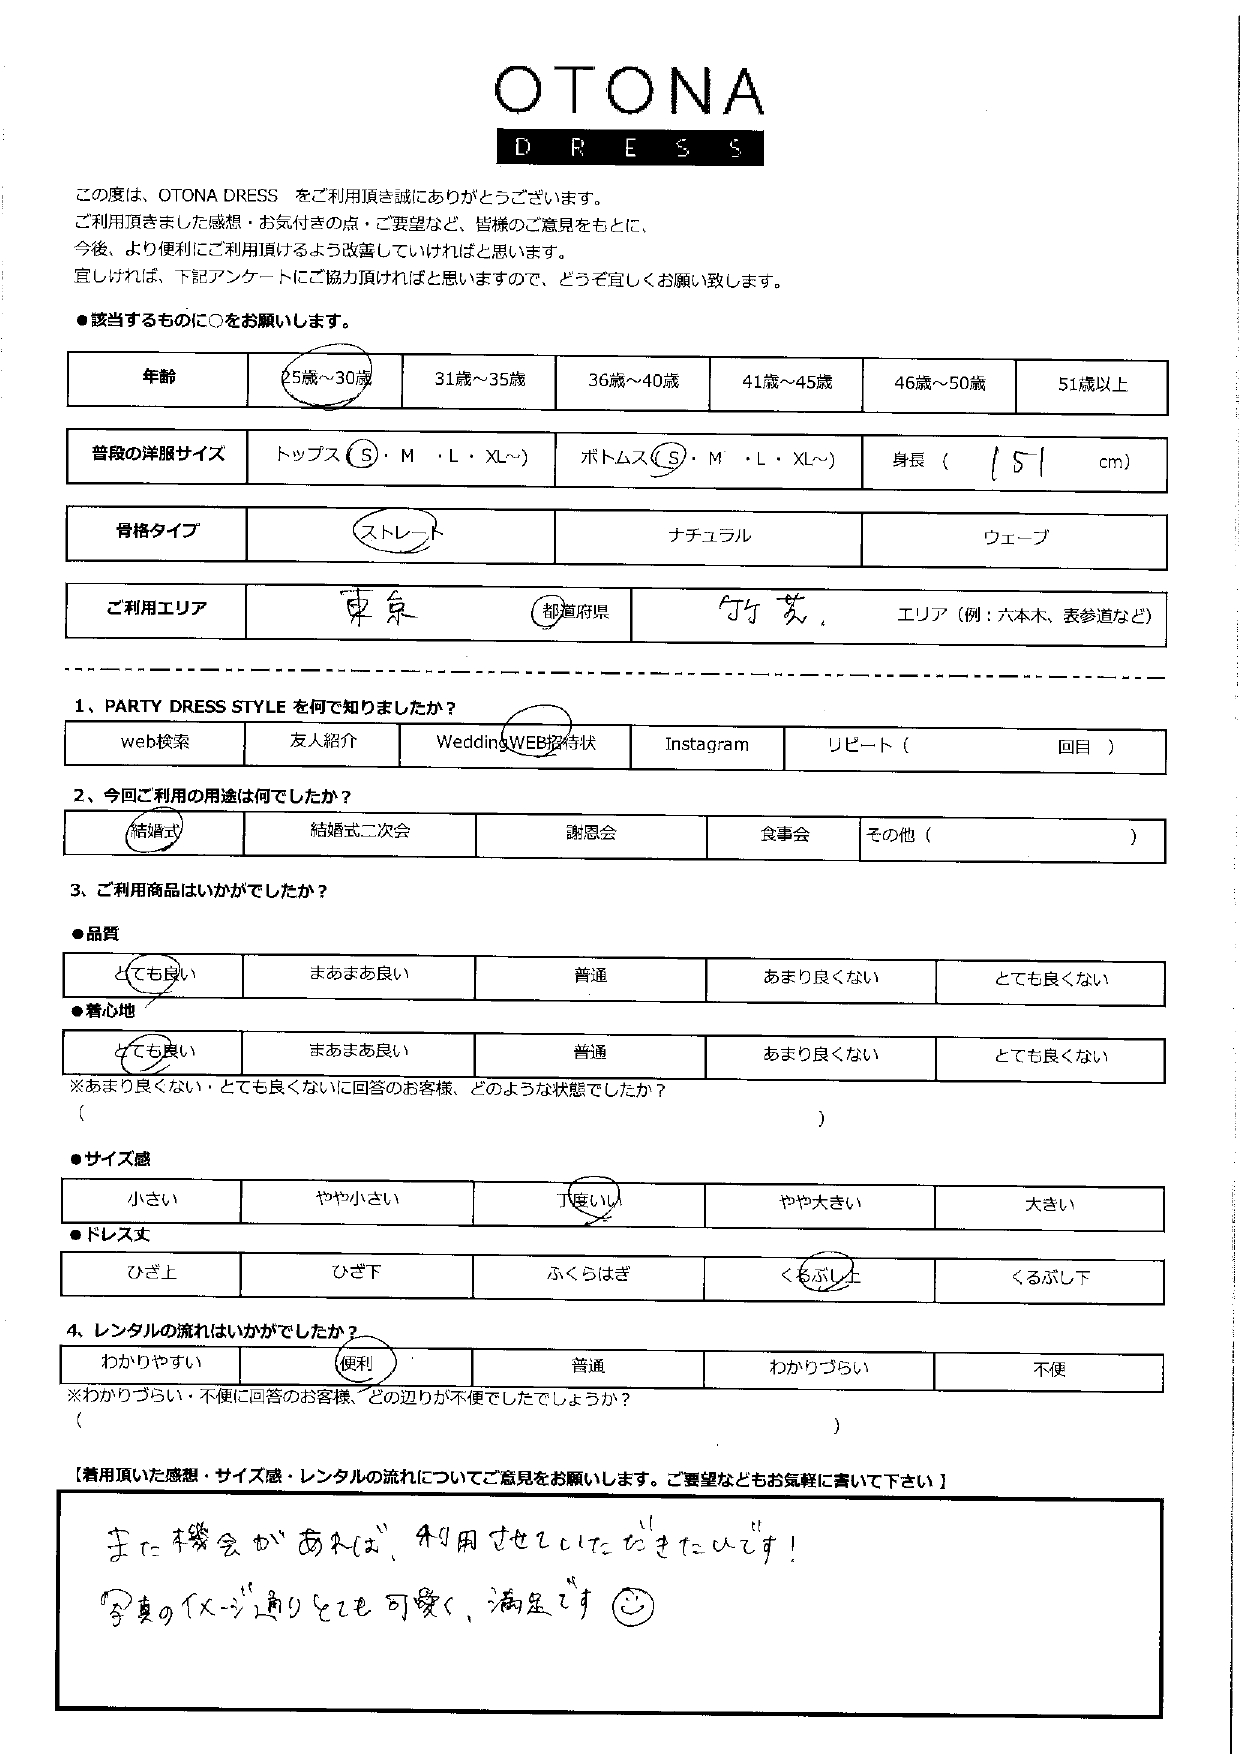 OTONA
DRESS
この度は、OTONA DRESS をご利用頂き誠にありがとうございます。
ご利用頂きました感想・お気付きの点・ご要望など、皆様のご意見をもとに、
今後、より便利にご利用頂けるよう改善していければと思います。
宜しければ、下記アンケートにご協力頂ければと思いますので、どうぞ宜しくお願い致します。
●該当するものに○をお願いします。
年齢 25歳～30歳 31歳～35歳 36歳～40歳 41歳～45歳 46歳～50歳 51歳以上
普段の洋服サイズ トップス(S・M ・L・XL～) ボトムス(S・M ・L・XL～) 身長 ( 151 cm)
骨格タイプ ストレート ナチュラル ウェーブ
ご利用エリア 東京 都道府県 竹芝. エリア（例：六本木、表参道など）
1、PARTY DRESS STYLE を何で知りましたか？
web検索 友人紹介 WeddingWEB招待状 Instagram リピート（ 回目 ）
2、今回ご利用の用途は何でしたか？
結婚式 結婚式二次会 謝恩会 食事会 その他（ ）
3、ご利用商品はいかがでしたか？
●品質
とても良い まあまあ良い 普通 あまり良くない とても良くない
●着心地
とても良い まあまあ良い 普通 あまり良くない とても良くない
※あまり良くない・とても良くないに回答のお客様、どのような状態でしたか？
( )
●サイズ感
小さい やや小さい 丁度いい やや大きい 大きい
●ドレス丈
ひざ上 ひざ下 ふくらはぎ くるぶし上 くるぶし下
4、レンタルの流れはいかがでしたか？
わかりやすい 便利 普通 わかりづらい 不便
※わかりづらい・不便に回答のお客様、どの辺りが不便でしたでしょうか？
( )
【着用頂いた感想・サイズ感・レンタルの流れについてご意見をお願いします。ご要望などもお気軽に書いて下さい】
また機会があれば、利用させていただきたいです！
写真のイメージ通りとても可愛く、満足です☺